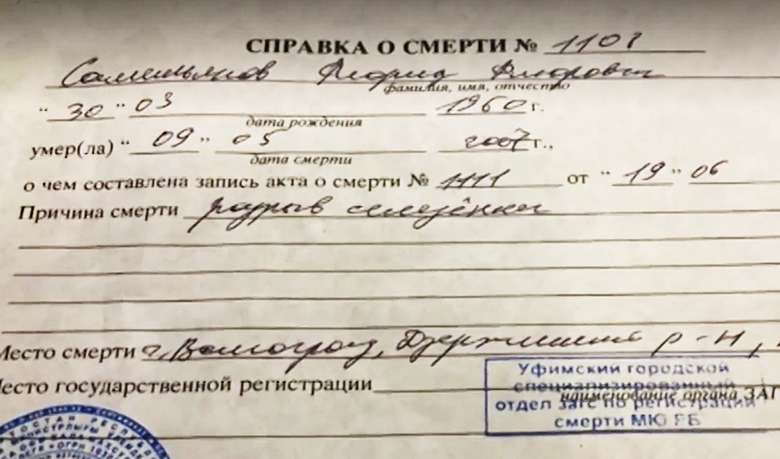 СПРАВКА О СМЕРТИ №
фамилия, имя, отчество
" 30 " 03 1960 г.
дата рождения
умер(ла) " 09 " 05 2007 г.,
дата смерти
о чем составлена запись акта о смерти № 1111 от " 19 " 06
Причина смерти разрыв селезёнки
Место смерти г. Волгоград, Дзержинский р-н,
Место государственной регистрации
Уфимский городской
специализированный
наименование органа ЗАГ
отдел ЗАГС по регистрации
смерти МЮ РБ